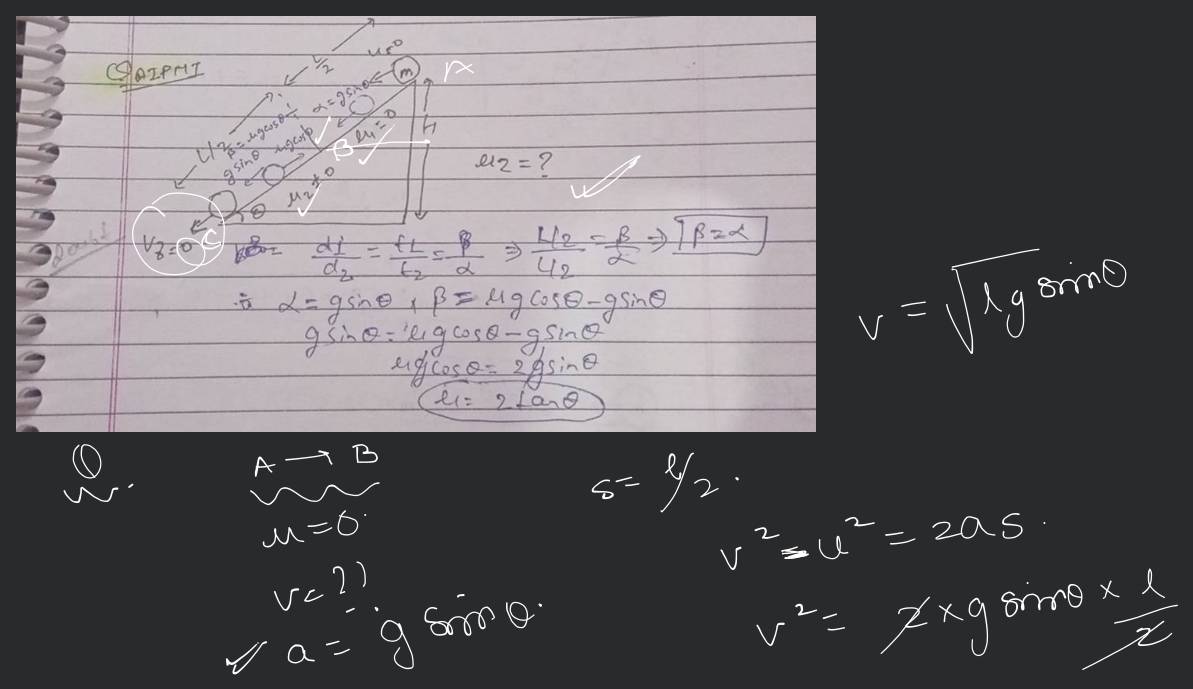 Q AIPMT
L/2
u=0
m
A
α=gsinθ
L/2
β=μgcosθ-
gsinθ
μgcosθ
μ1=0
B
H
μ2≠0
θ
μ2=?
Vf=0
C
Doubt
d1/d2 = t1/t2 = β/α ⇒ L/2/L/2 = β/α ⇒ β=α
∵ α=gsinθ, β=μgcosθ-gsinθ
gsinθ=μgcosθ-gsinθ
μgcosθ=2gsinθ
μ=2tanθ
v=√lg sinθ
①
A → B
u=0.
v=??
a=g sinθ.
s=l/2.
v²-u²=2as.
v²=2×g sinθ×l/2